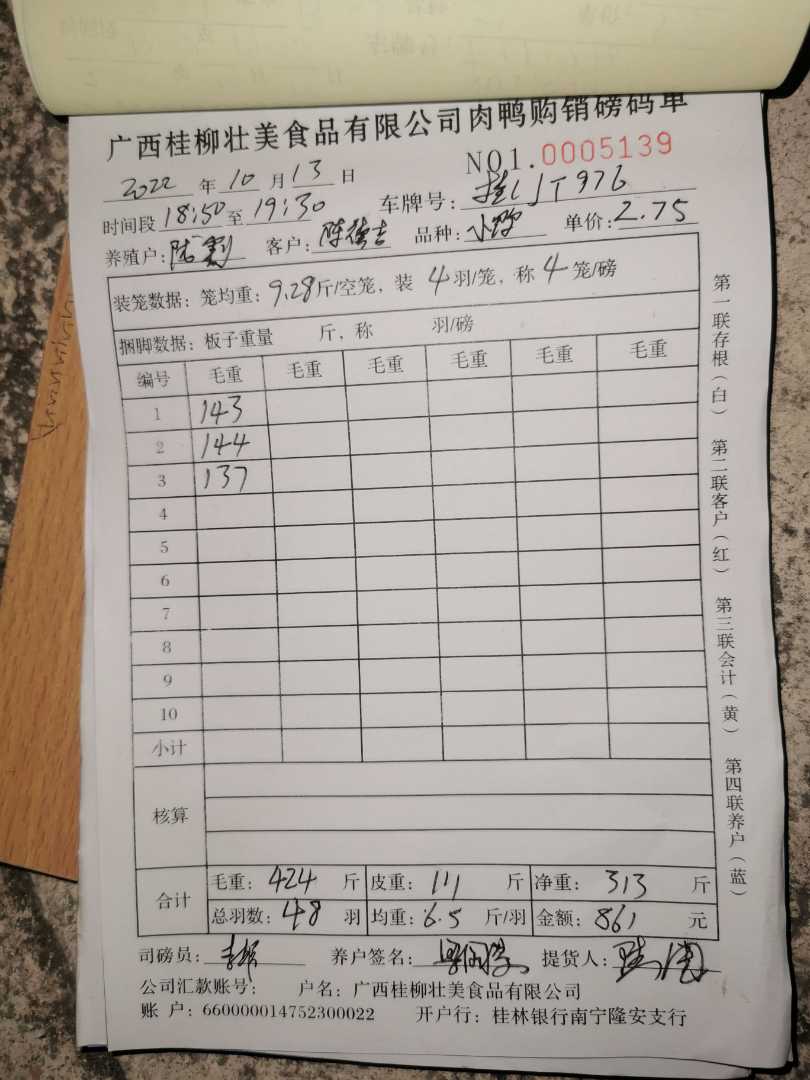 广西桂柳壮美食品有限公司肉鸭购销磅码单
NO1.0005139
2022 年 10 月 13 日
时间段 18:50 至 19:30 车牌号: 桂 976
养殖户: 客户: 陈德吉 品种: 小 单价: 2.75
装笼数据: 笼均重: 9.28 斤/空笼, 装 4 羽/笼, 称 4 笼/磅
捆脚数据: 板子重量 斤, 称 羽/磅
编号 毛重 毛重 毛重 毛重 毛重 毛重
1 143
2 144
3 137
4
5
6
7
8
9
10
小计
核算
合计
毛重: 424 斤 皮重: 111 斤 净重: 313 斤
总羽数: 48 羽 均重: 6.5 斤/羽 金额: 861 元
司磅员: 养户签名: 提货人:
公司汇款账号: 户名: 广西桂柳壮美食品有限公司
账 户: 660000014752300022 开户行: 桂林银行南宁隆安支行
第一联存根(白) 第二联客户(红) 第三联会计(黄) 第四联养户(蓝)